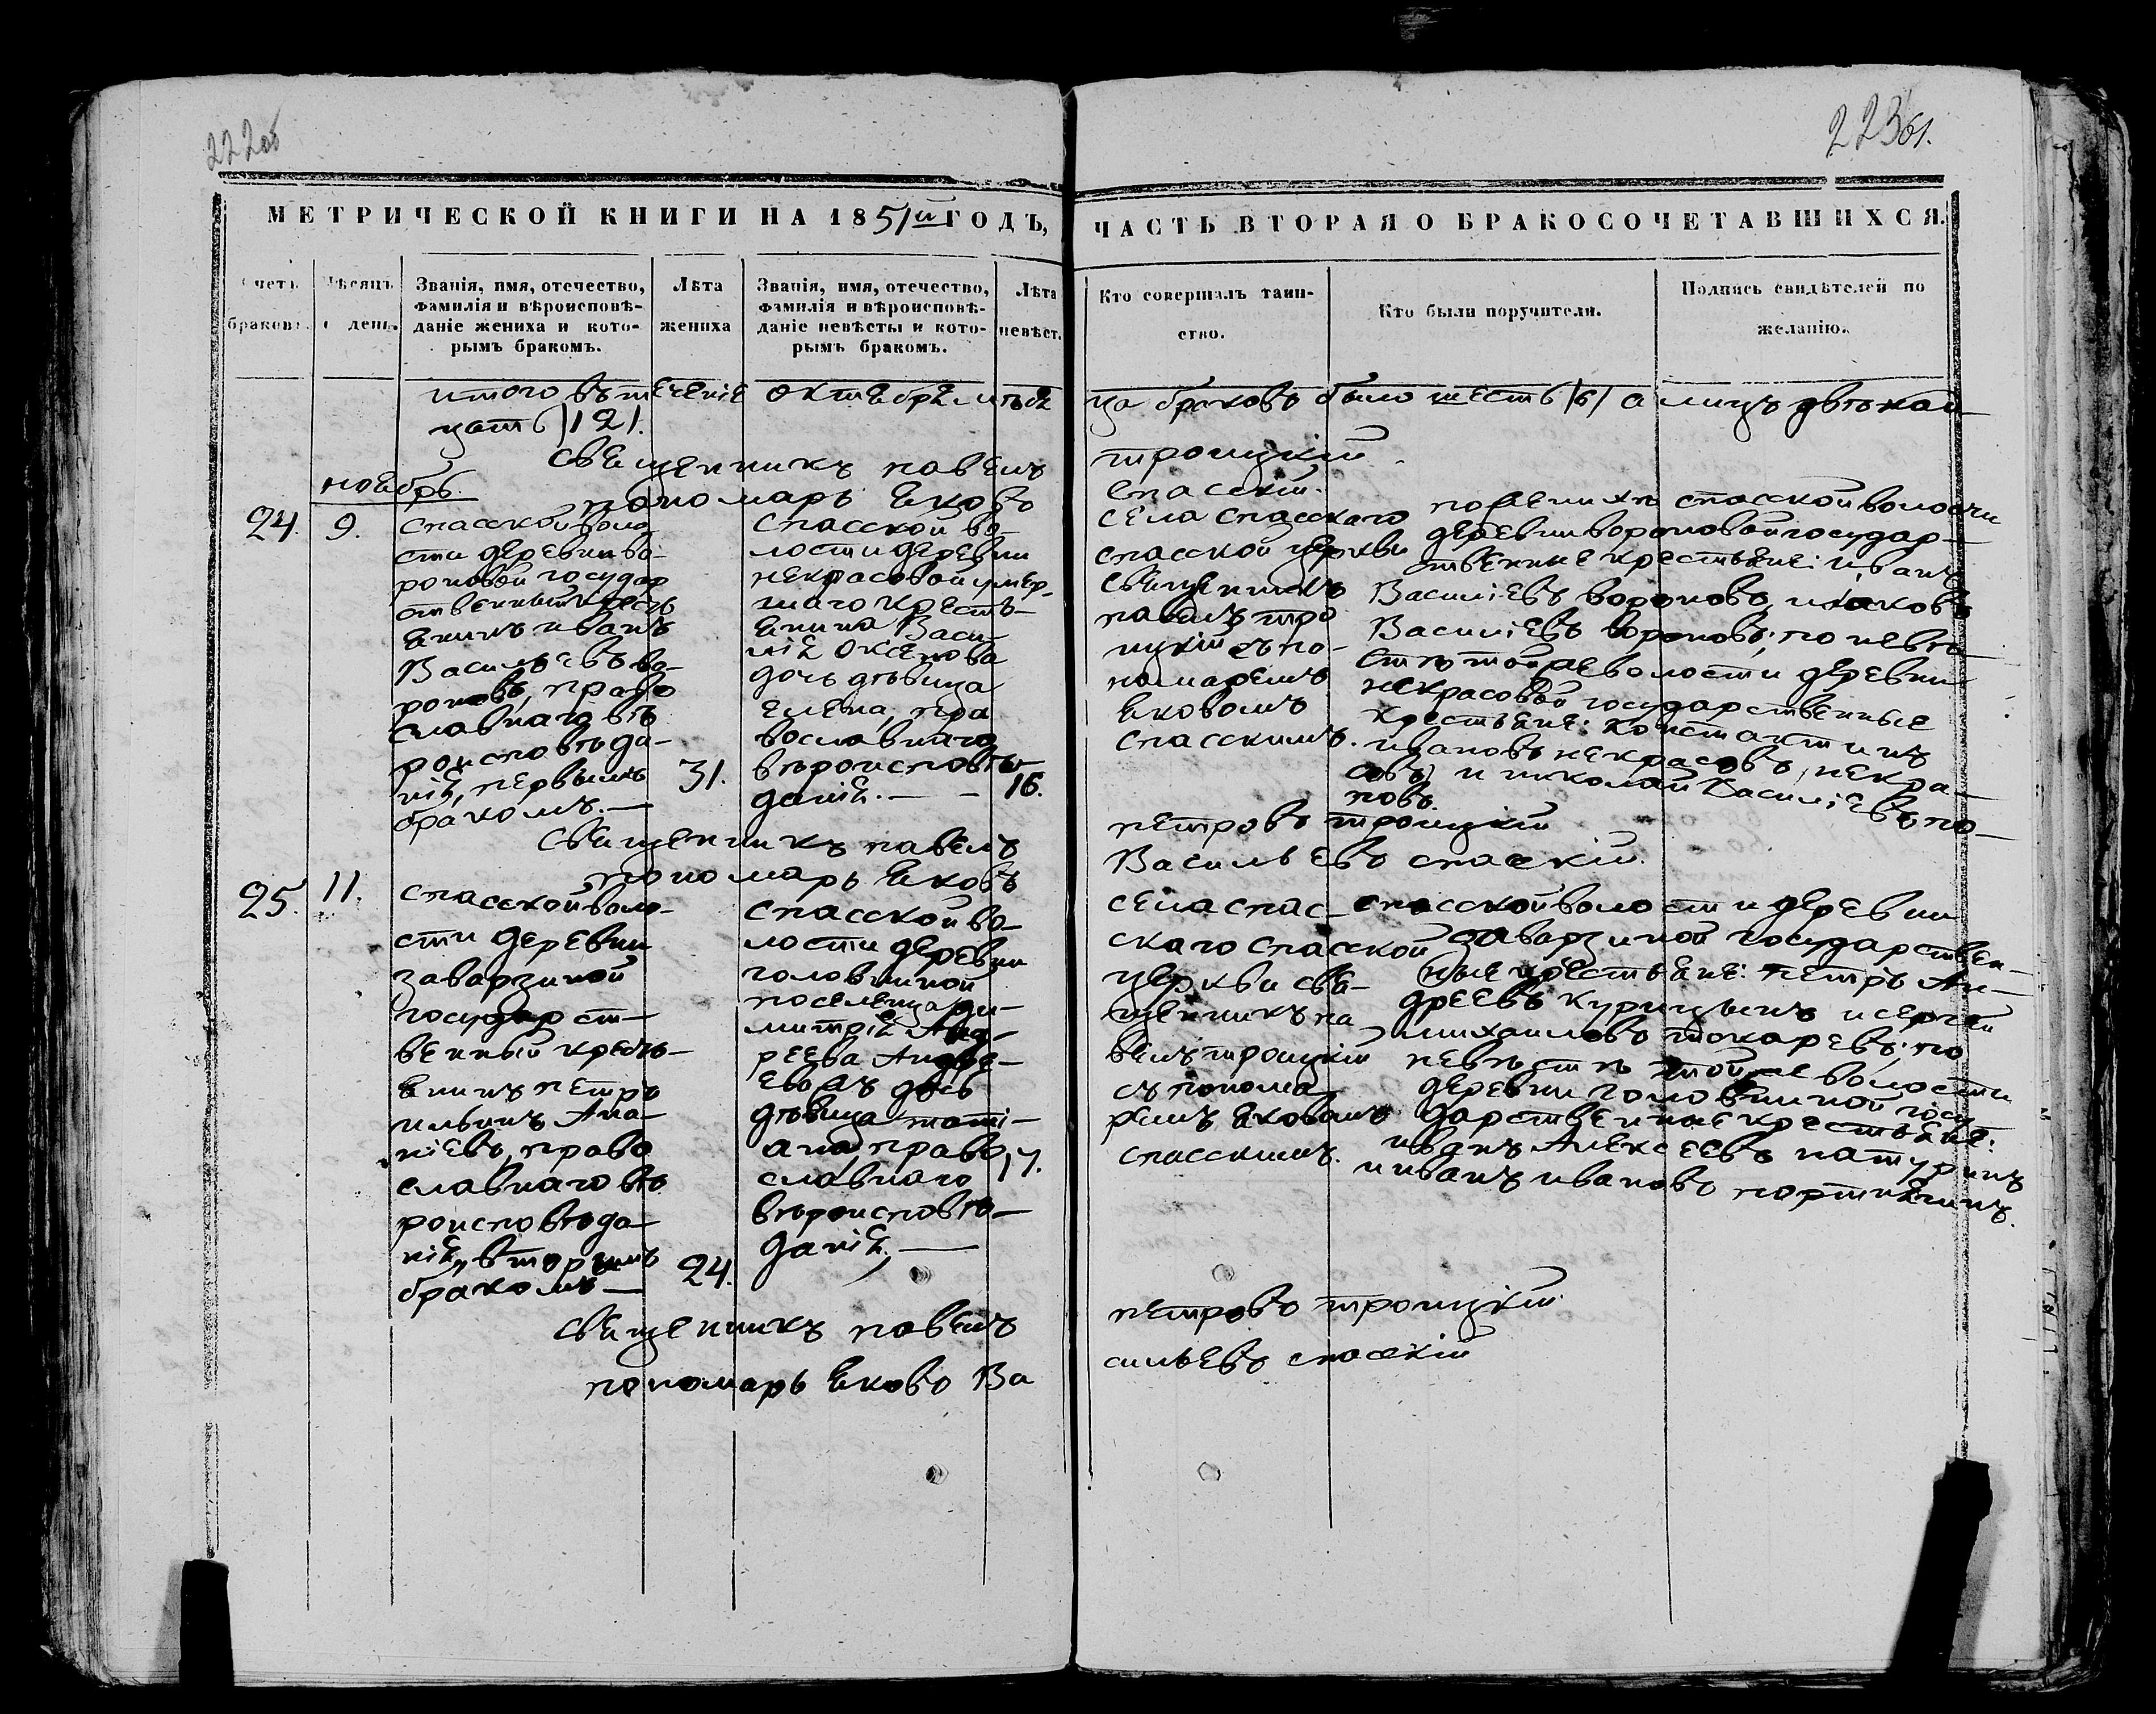 222об
223
61.
МЕТРИЧЕСКОЙ КНИГИ НА 1851й ГОДЪ,
ЧАСТЬ ВТОРАЯ О БРАКОСОЧЕТАВШИХСЯ.
Счетъ
браковъ.
Мѣсяцъ
и день.
Званія, имя, отечество,
фамилія и вѣроисповѣ-
даніе жениха и кото-
рымъ бракомъ.
Лѣта
жениха
Званія, имя, отечество,
фамилія и вѣроисповѣ-
даніе невѣсты и кото-
рымъ бракомъ.
Лѣта
невѣст.
Кто совершалъ таин-
ство.
Кто были поручители.
Подпись свидѣтелей по
желанію.
итого въ теченіе октября мѣся
ца браковъ было шесть /6/ а лицъ двѣнад
цать /12/.
священникъ павелъ
троицкій
пономарь яковъ
спасскій.
ноябрь.
24.
9.
спасской воло
сти деревни во-
роновой государ
ственный кресть
янинъ иванъ
Васильевъ во-
роновъ, право
славнаго вѣ
роисповѣда-
нія, первымъ
бракомъ.—
31.
спасской во-
лости деревни
некрасовой умер-
шаго кресть-
янина Васи-
лія Оксенова
дочь дѣвица
елена, пра
вославнаго
вѣроисповѣ-
данія.— -
16.
села спасскаго
спасской церкви
священникъ
павелъ тро
ицкій съ по-
номаремъ
яковомъ
спасскимъ.
по женихѣ спасской волости
деревни вороновой государ-
ственные крестьяне: иванъ
Василіевъ вороновъ, и яковъ
Василіевъ вороновъ; по невѣ
стѣ той же волости деревни
некрасовой государственные
крестьяне: константинъ
ивановъ некрасовъ, некра-
совъ, и николай Василіевъ по-
повъ.
священникъ павелъ
петровъ троицкій
пономарь яковъ
Васильевъ спасскій.
25.
11.
спасской воло-
сти деревни
заварзиной
государст-
венный кресть-
янинъ петръ
ильинъ Ана-
ніевъ, право
славнаго вѣ
роисповѣда-
нія, вторымъ
бракомъ—
24.
спасской во-
лости деревни
головниной
поселенца ди-
митрія Анд-
реева Андре-
дочь
дѣвица таті-
ана, право
славнаго
вѣроисповѣ-
данія,—
17.
села спас-
скаго спасской
церкви свя-
щенникъ па
велъ троицкій
съ понома-
ремъ яковомъ
спасскимъ.
спасской волости деревни
заварзиной государствен-
ные крестьяне: петръ Ан-
дреевъ курицынъ и сергѣй
михаиловъ токаревъ; по
невѣстѣ той же волости
деревни головниной госу-
дарственные крестьяне:
иванъ Алексеевъ патуринъ
и иванъ ивановъ портнягинъ.
священникъ павелъ
петровъ троицкій.
пономарь яковъ Ва
сильевъ спасскій